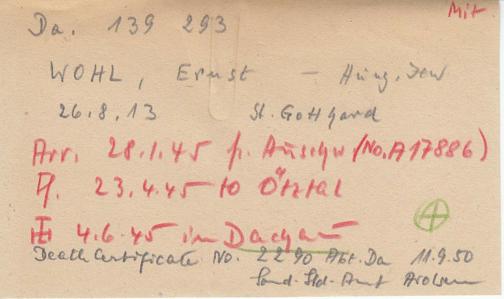 Mit
Da. 139 293
WOHL, Ernst - Hung. Jew
26.8.13 St. Gotthard
Arr. 28.1.45 fr. Auschw (No. A 17886)
23.4.45 to Ötztal
4.6.45 in Dachau
Death Certificate No. 2290 Abt. Da 11.9.50
Sond. Std. Amt Arolsen